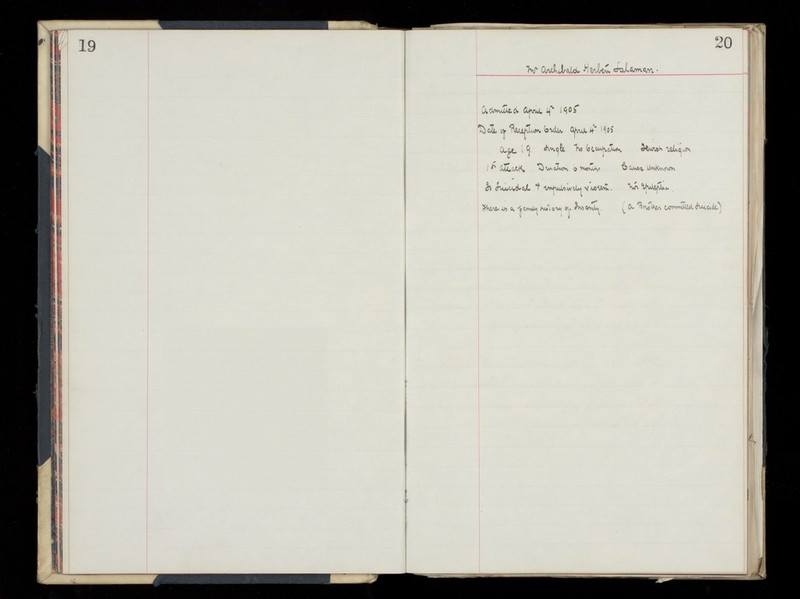 19
20
Mr Archibald Herbert Salaman.
Admitted April 4th 1905
Date of Reception Order April 4th 1905
Age 19 Single No Occupation Jewish religion
1st attack Duration 6 months Cause unknown
Is Suicidal & impulsively violent. Not Epileptic.
There is a family history of Insanity. (A Brother committed Suicide)